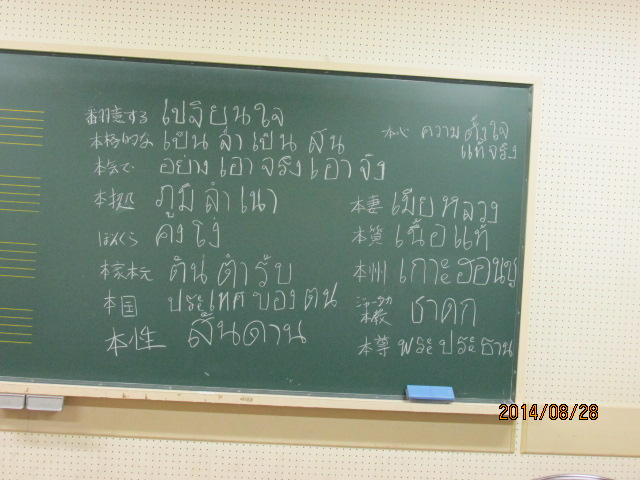 翻意する เปลี่ยนใจ
本格的な เป็นล่ำเป็นสัน
本気で อย่างเอาจริงเอาจัง
本拠 ภูมิลำเนา
ぼんくら คนโง่
本家本元 ต้นตำรับ
本国 ประเทศของตน
本性 สันดาน
本心 ความตั้งใจ
แท้จริง
本妻 เมียหลวง
本質 เนื้อแท้
本州 เกาะฮอนชู
本教 ชาดก
本尊 พระประธาน
2014/08/28